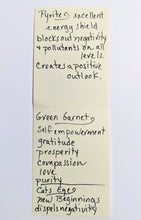 Pyrite - excellent
energy shield
blocks out negativity
& pollutants on all
levels
Creates a positive
outlook.
Green Garnet
Self empowerment
gratitude
prosperity
compassion
love
purity
Cats Eye
new Beginnings
dispels negativity